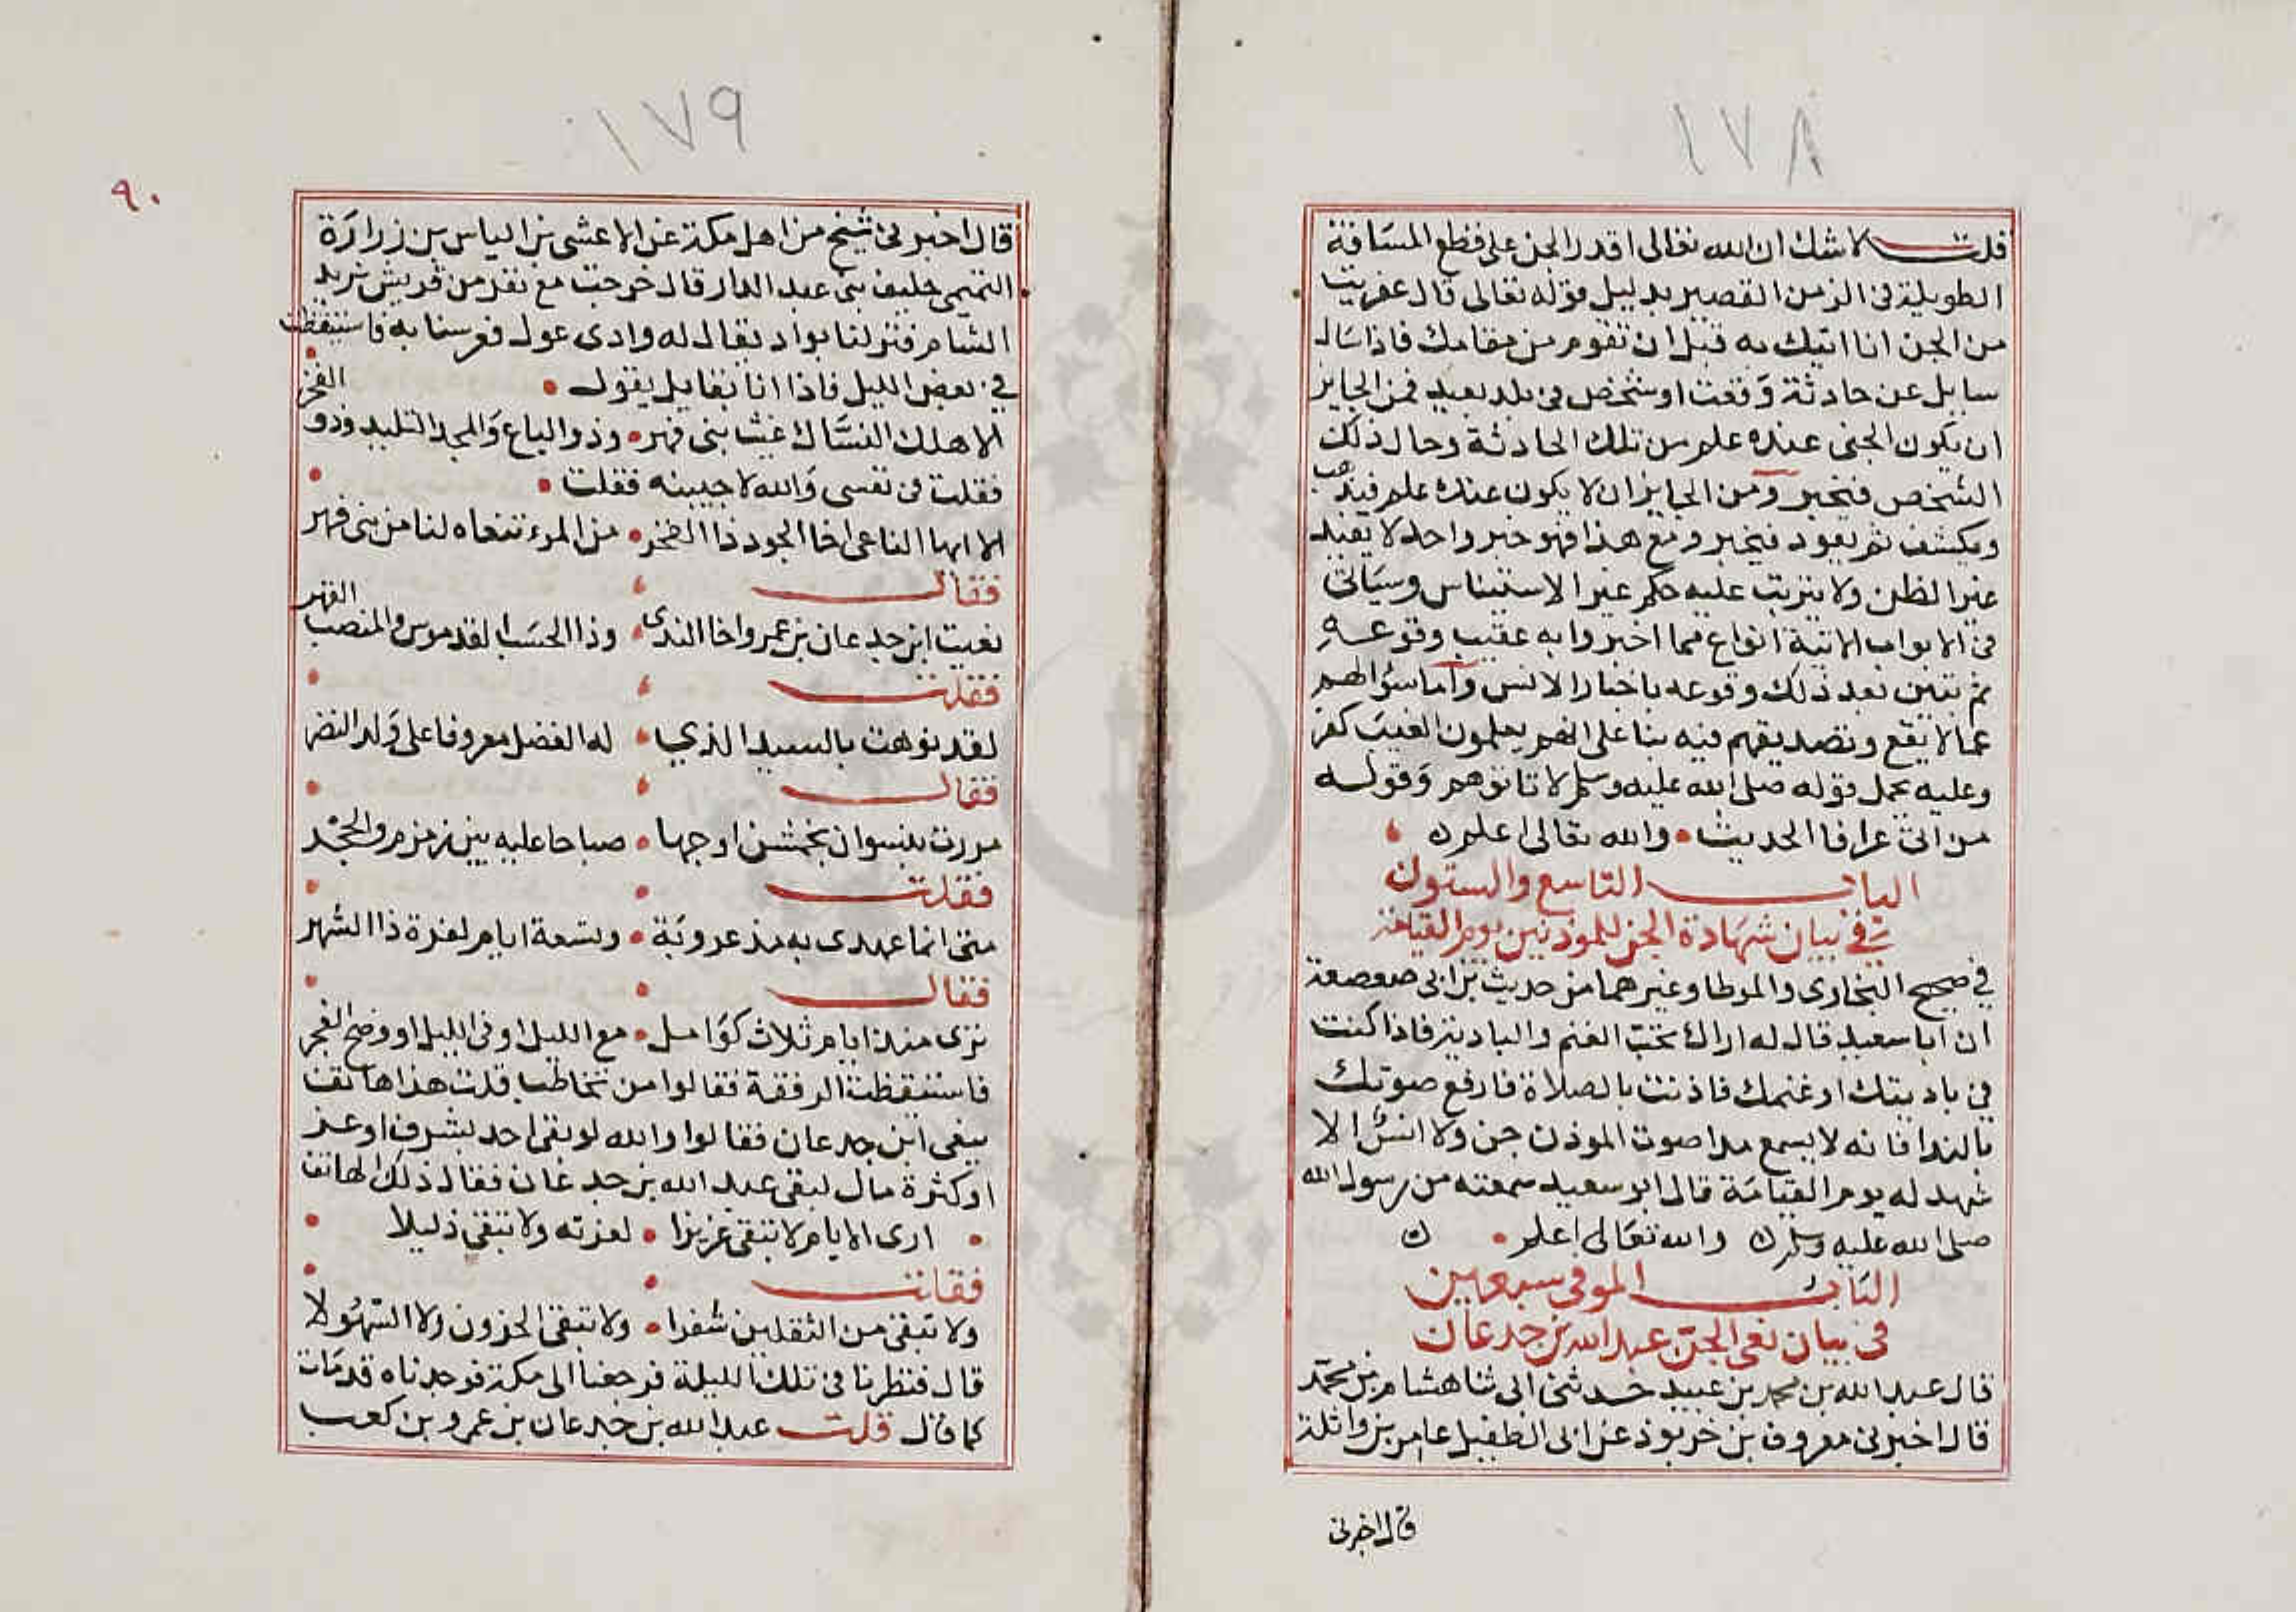 ١٧٨
قلت لا شك ان الله تعالى اقدر الجن على قطع المسافة
الطويلة فى الزمن القصير بدليل قوله تعالى قال عفريت
من الجن انا اتيك به قبل ان تقوم من مقامك فاذا سال
سايل عن حادثة وقعت او شخص فى بلد بعيد فمن الجايز
ان يكون الجنى عنده علم من تلك الحادثة وحال ذلك
الشخص فيخبر ومن الجايز ان لا يكون عنده علم فيذهب
ويكشف ثم يعود فيخبر ومع هذا فهو خبر واحد لا يفيد
غير الظن ولا يترتب عليه حكم غير الاستيناس وسياتى
فى الابواب الاتية انواع مما اخبروا به عقيب وقوعه
ثم تبين بعد ذلك وقوعه باخبار الانس واما سؤالهم
عما لا يقع وتصديقهم فيه بنا على انهم يعلمون الغيب كفر
وعليه يحمل قوله صلى الله عليه وسلم لا تاتوهم وقوله
من اتى عرافا الحديث والله تعالى اعلم ه
الباب التاسع والستون
فى بيان شهادة الجن للموذنين يوم القيامة
في صحيح البخارى والموطا وغيرهما من حديث بن ابى صعصعة
ان ابا سعيد قال له اراك تحب الغنم والبادية فاذا كنت
فى باديتك او غنمك فاذنت بالصلاة فارفع صوتك
بالندا فانه لا يسمع مدا صوت الموذن جن ولا انس الا
شهد له يوم القيامة قال ابو سعيد سمعته من رسول الله
صلى الله عليه وسلم ه والله تعالى اعلم ه
الباب الموفى سبعين
فى بيان نعى الجن عبد الله بن جدعان
قال عبد الله بن محمد بن عبيد حدثنى ابى ثنا هشام بن محمد
قال اخبرنى معروف بن خربوذ عن ابى الطفيل عامر بن واثلة
قال اخبرنى
١٧٩
٩٠
قال اخبرنى شيخ من اهل مكة عن الاعشى بن الياس بن زرارة
التميمى حليف بنى عبد الدار قال خرجت مع نفر من قريش نريد
الشام فنزلنا بواد يقال له وادى عول فعرسنا به فاستيقظت
في بعض الليل فاذا انا بقايل يقول
الا هلك النساك غيث بنى فهر وذو الباع والمجد التليد وذو الفخر
فقلت فى نفسى والله لاجيبنه فقلت
الا ايها الناعى اخا الجود ذا الفخر من المرء تنعاه لنا من بنى فهر
فقال
نعيت ابن جدعان بن عمرو اخا الندى وذا الحسب القدموس والمنصب القهر
فقلت
لقد نوهت بالسيد الذي له الفضل معروفا على ولد النضر
فقال
مررت بنسوان يخمشن اوجها صباحا عليه بين زمزم والحجر
فقلت
متى انما عهدى به مذ عروبة وتسعة ايام لغرة ذا الشهر
فقال
ثوى منذ ايام ثلاث كوامل مع الليل او فى الليل او وضح الفجر
فاستيقظت الرفقة فقالوا من تخاطب قلت هذا هاتف
ينعى ابن جدعان فقالوا والله لو بقى احد بشرف او عز
او كثرة مال لبقى عبد الله بن جدعان فقال ذلك الهاتف
ارى الايام لا تبقى عزيزا لعزته ولا تبقى ذليلا
فقلت
ولا تبقى من الثقلين شفرا ولا تبقى الحزون ولا السهولا
قال فنظرنا فى تلك الليلة فرجعنا الى مكة فوجدناه قد مات
كما قال قلت عبد الله بن جدعان بن عمرو بن كعب